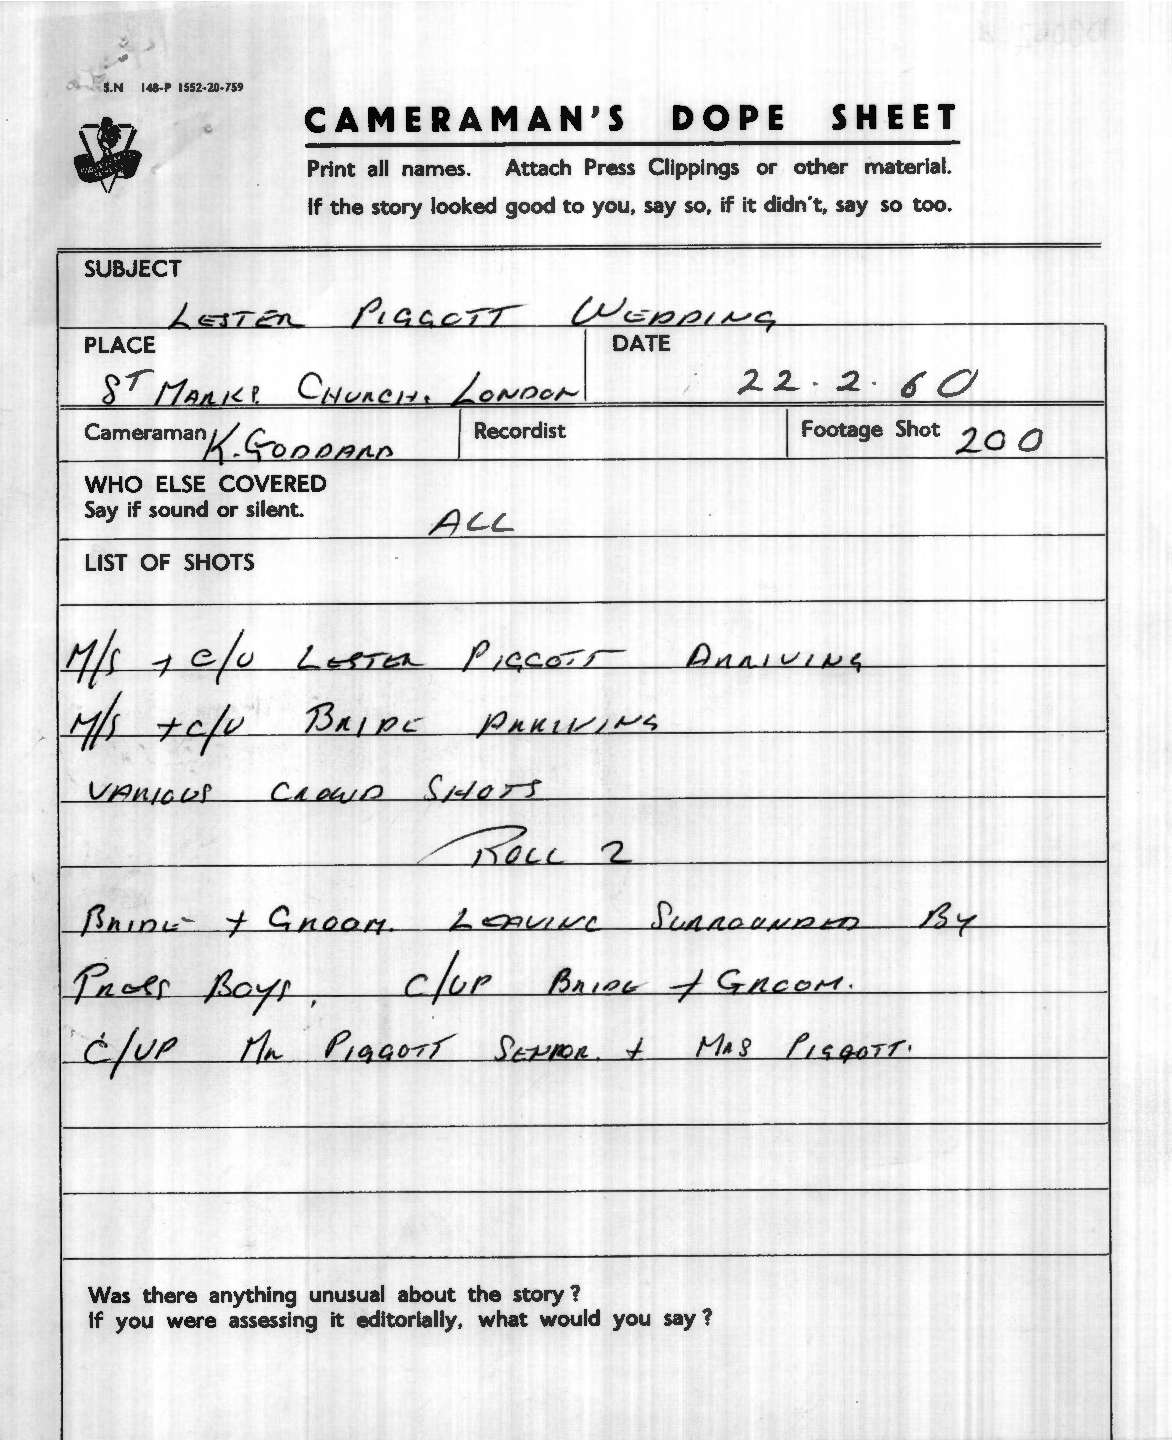 S.N 148-P 1552-20-759
CAMERAMAN'S DOPE SHEET
Print all names. Attach Press Clippings or other material.
If the story looked good to you, say so, if it didn't, say so too.
SUBJECT
LESTER PIGGOTT WEDDING
PLACE
ST MARKS CHURCH. LONDON
DATE
22.2.60
Cameraman K. GODDARD
Recordist
Footage Shot 200
WHO ELSE COVERED
Say if sound or silent.
ALL
LIST OF SHOTS
M/S + C/U LESTER PIGGOTT ARRIVING
M/S + C/U BRIDE ARRIVING
VARIOUS CROWD SHOTS
ROLL 2
BRIDE + GROOM. LEAVING SURROUNDED BY
PRESS BOYS. C/UP BRIDE + GROOM.
C/UP MR PIGGOTT SENIOR. + MRS PIGGOTT.
Was there anything unusual about the story?
If you were assessing it editorially, what would you say?